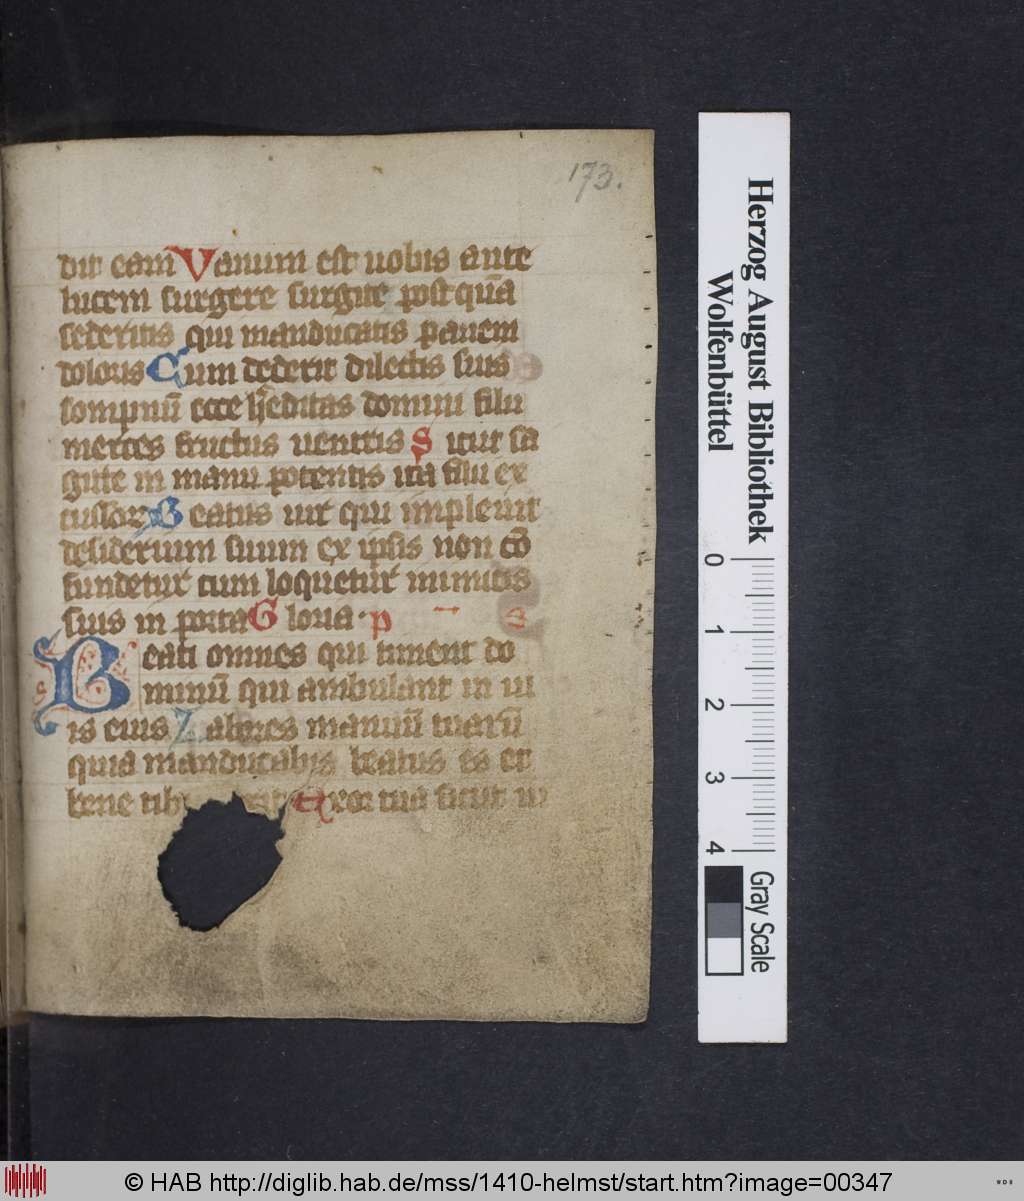 173.
dit eam Vanum est uobis ante
lucem surgere surgite postquā
sederitis qui manducatis panem
doloris Cum dederit dilectis suis
sompnū ecce hereditas domini filii
merces fructus uentris Sicut sa
gitte in manu potentis ita filii ex
cussor Beatus uir qui impleuit
desiderium suum ex ipsis non cō
fundetur cum loquetur inimicis
suis in porta Gloria p s
Beati omnes qui timent do
minū qui ambulant in ui
is eius Labores manuū tuarū
quia manducabis beatus es et
bene tibi Uxor tua sicut ui
Herzog August Bibliothek
Wolfenbüttel
0 1 2 3 4
Gray Scale
© HAB http://diglib.hab.de/mss/1410-helmst/start.htm?image=00347